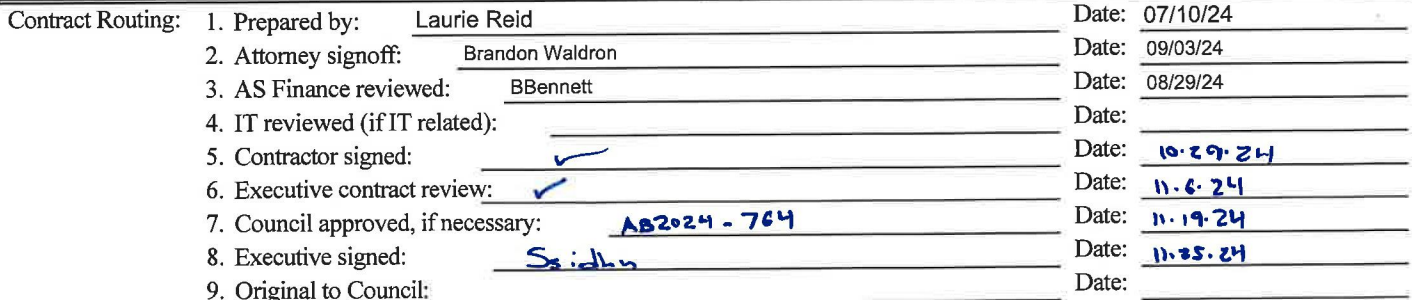 Contract Routing: 1. Prepared by: Laurie Reid Date: 07/10/24
2. Attorney signoff: Brandon Waldron Date: 09/03/24
3. AS Finance reviewed: BBennett Date: 08/29/24
4. IT reviewed (if IT related): Date:
5. Contractor signed: ✓ Date: 10.29.24
6. Executive contract review: ✓ Date: 11.6.24
7. Council approved, if necessary: AB2024-764 Date: 11.19.24
8. Executive signed: Ssidhu Date:
9. Original to Council: Date: